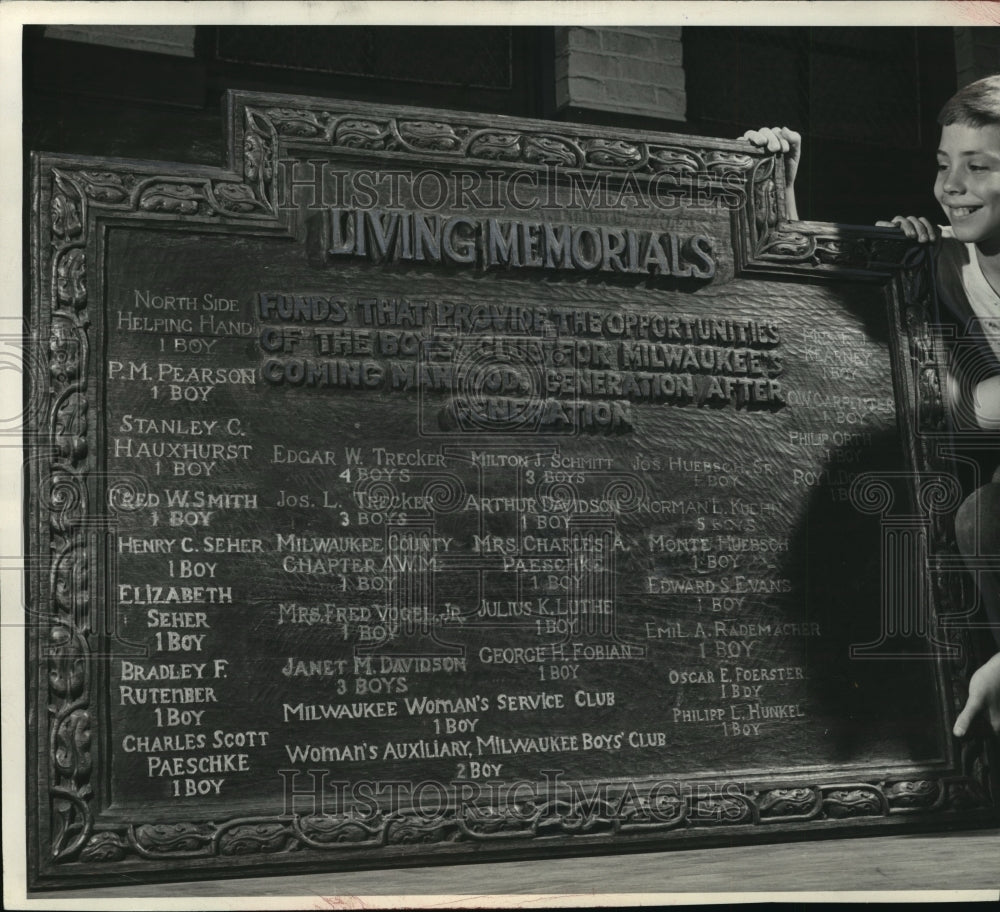 HISTORIC IMAGES
LIVING MEMORIALS
FUNDS THAT PROVIDE THE OPPORTUNITIES
OF THE BOYS' CLUB FOR MILWAUKEE'S
COMING MANHOOD, GENERATION AFTER
GENERATION
NORTH SIDE
HELPING HAND
1 BOY
P.M. PEARSON
1 BOY
STANLEY C.
HAUXHURST
1 BOY
FRED W. SMITH
1 BOY
HENRY C. SEHER
1 BOY
ELIZABETH
SEHER
1 BOY
BRADLEY F.
RUTENBER
1 BOY
CHARLES SCOTT
PAESCHKE
1 BOY
EDGAR W. TRECKER
4 BOYS
JOS. L. TRECKER
3 BOYS
MILWAUKEE COUNTY
CHAPTER A.W.M.
1 BOY
MRS. FRED VOGEL, JR.
1 BOY
JANET M. DAVIDSON
3 BOYS
MILWAUKEE WOMAN'S SERVICE CLUB
1 BOY
WOMAN'S AUXILIARY, MILWAUKEE BOYS' CLUB
2 BOY
MILTON J. SCHMITT
3 BOYS
ARTHUR DAVIDSON
1 BOY
MRS. CHARLES A.
PAESCHKE
1 BOY
JULIUS K. LUTHE
1 BOY
GEORGE H. FOBIAN
1 BOY
JOS. HUEBSCH SR.
1 BOY
NORMAN L. KUEHN
5 BOYS
MONTE HUEBSCH
1 BOY
EDWARD S. EVANS
1 BOY
EMIL A. RADEMACHER
1 BOY
OSCAR E. FOERSTER
1 BOY
PHILIPP L. HUNKEL
1 BOY
1 BOY
O.W. CARPENTER
1 BOY
PHILIP ORTH
1 BOY
ROY L.
HISTORIC IMAGES